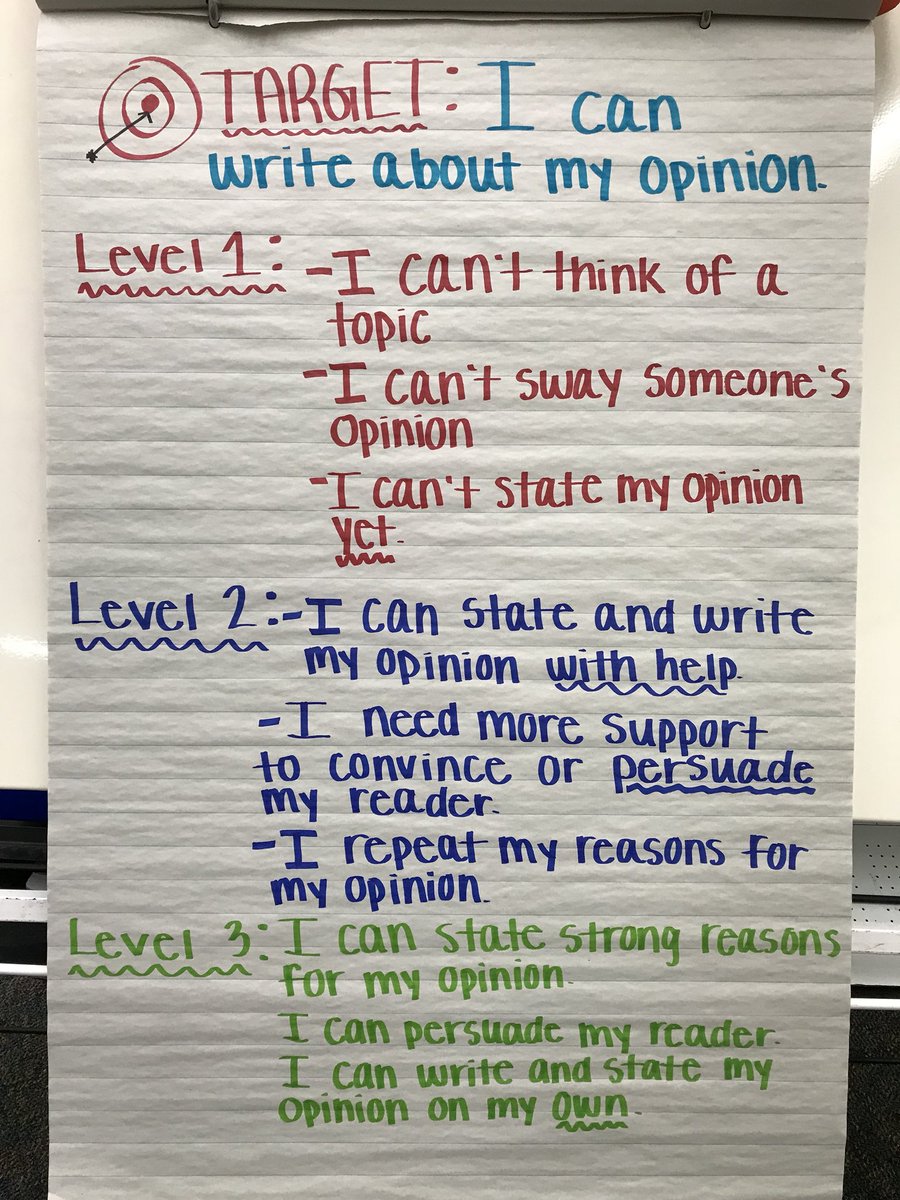 TARGET: I can
write about my opinion.
Level 1: -I can't think of a
topic
-I can't sway someone's
opinion
-I can't state my opinion
yet.
Level 2:-I can state and write
my opinion with help.
-I need more support
to convince or persuade
my reader.
-I repeat my reasons for
my opinion.
Level 3: I can state strong reasons
for my opinion.
I can persuade my reader.
I can write and state my
opinion on my own.